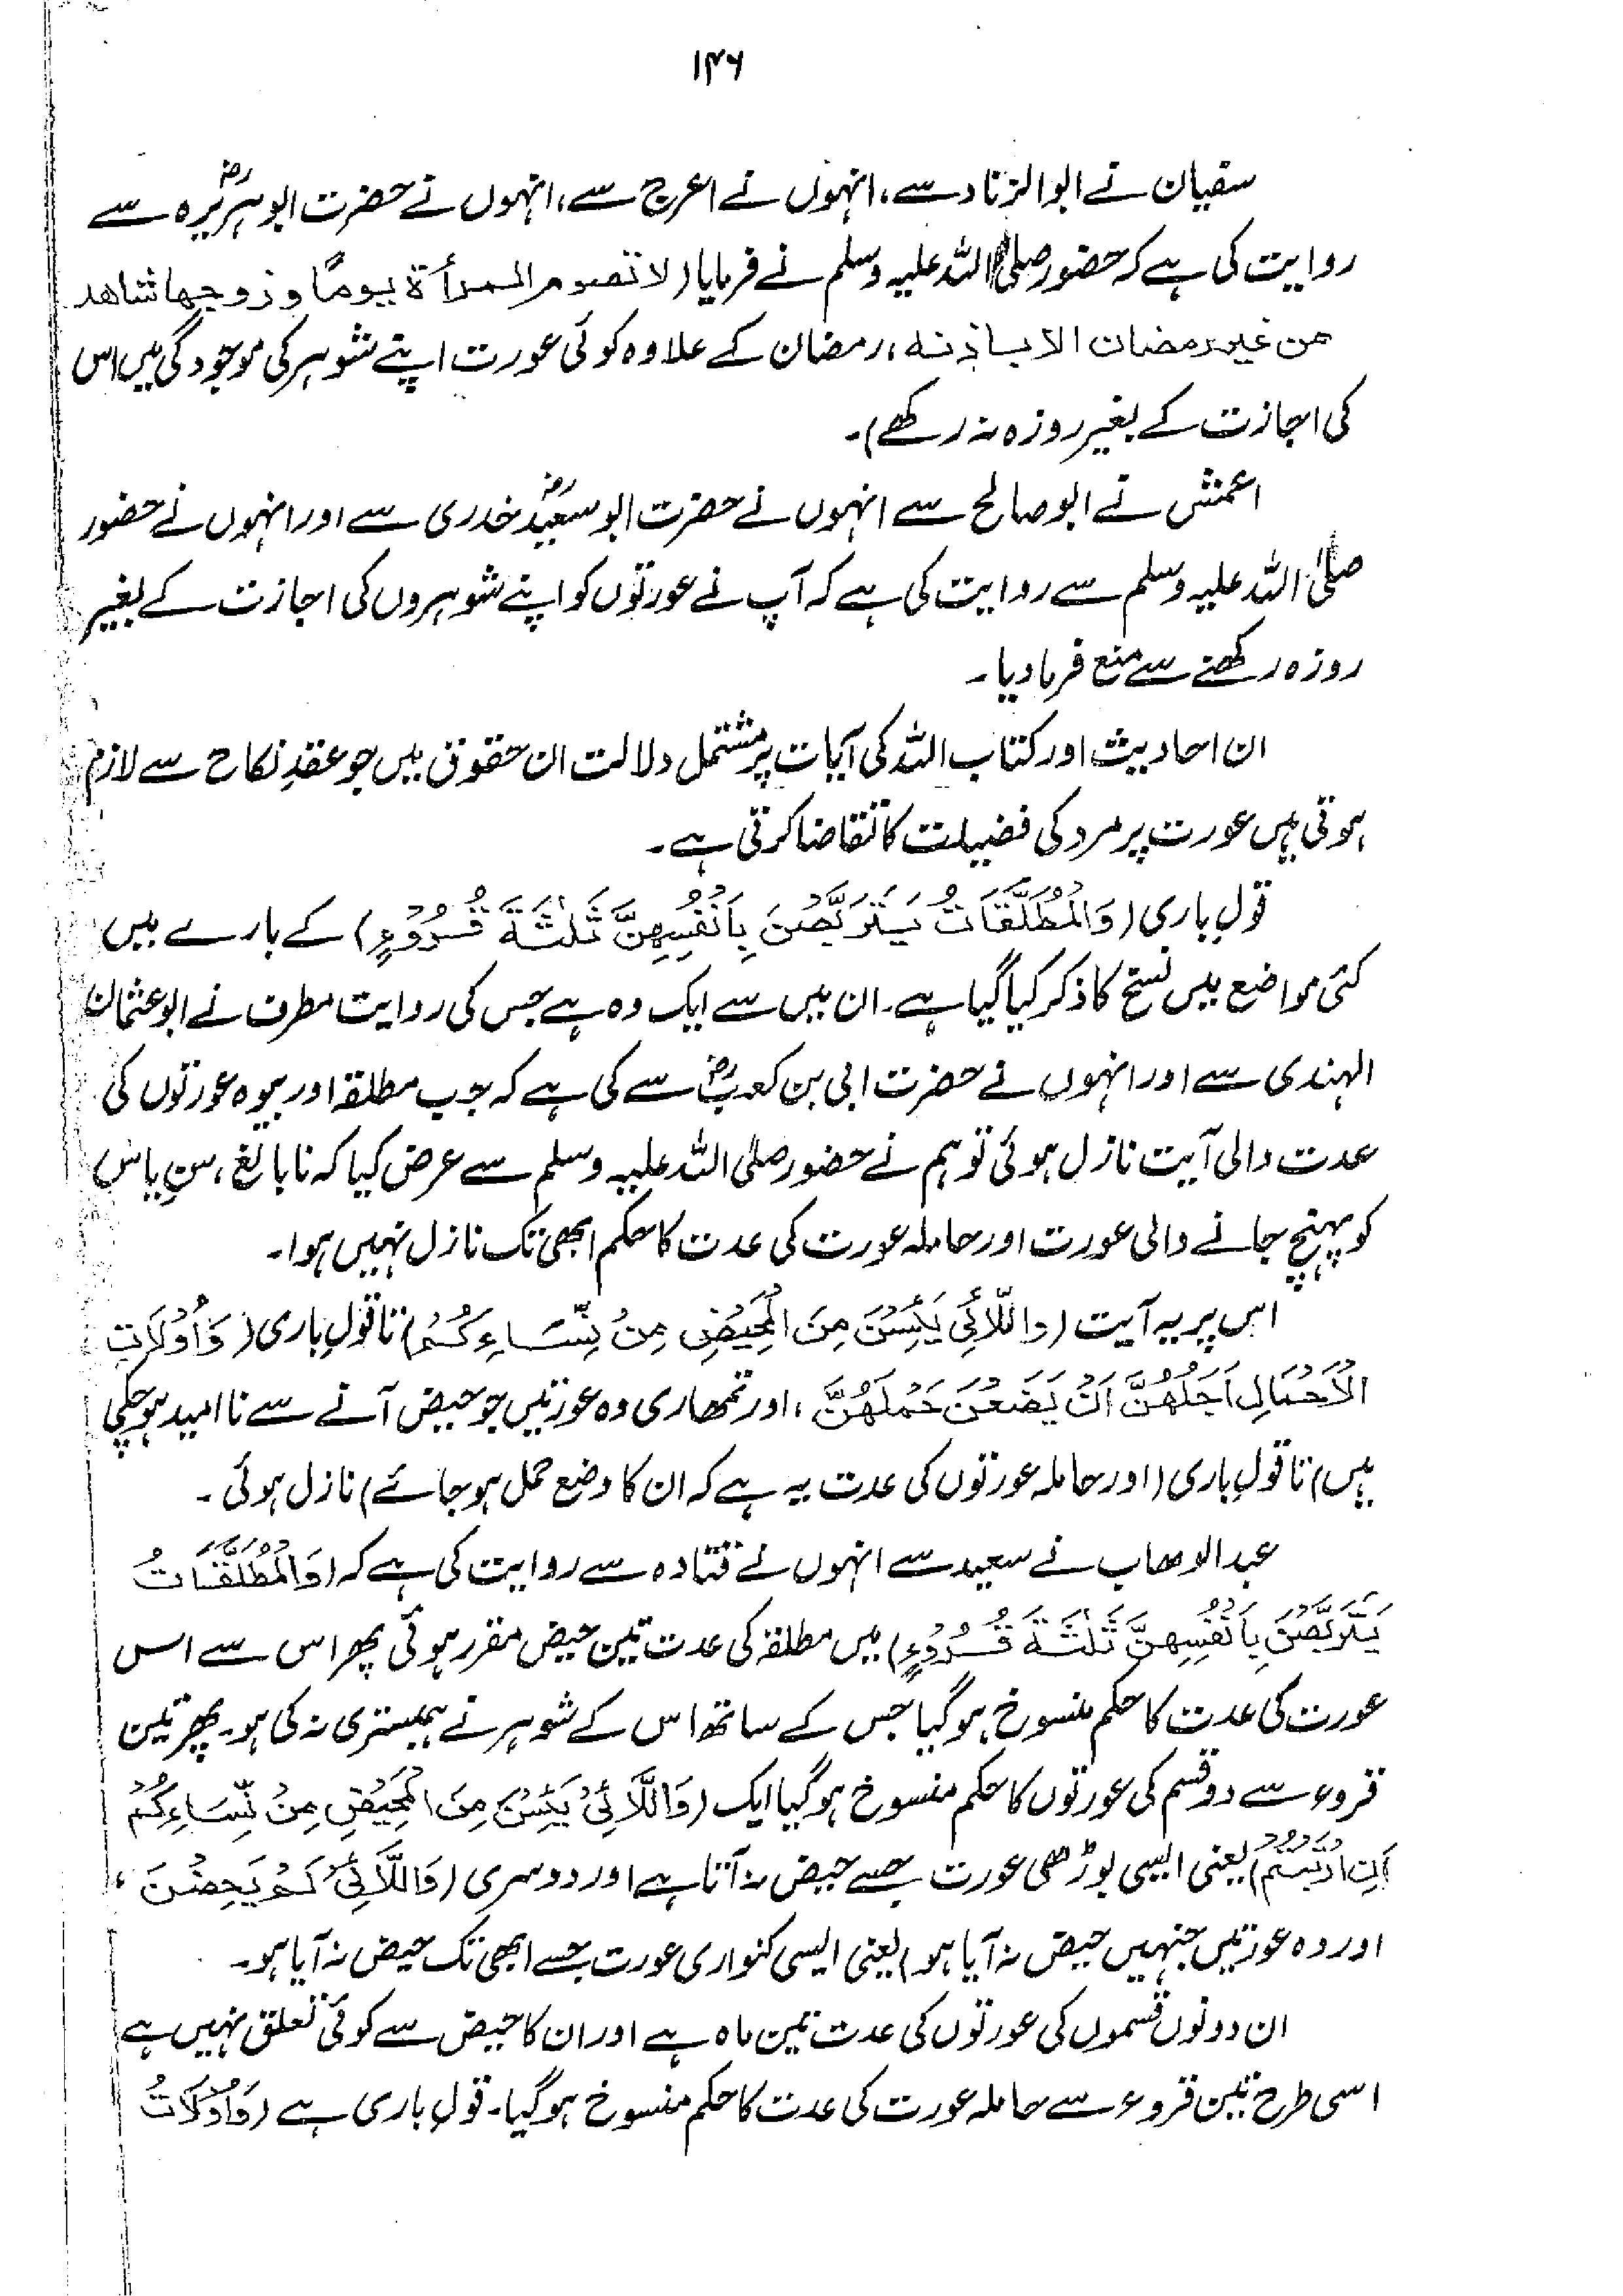 ۱۴۶
سفیان نے ابوالزناد سے، انہوں نے اعرج سے، انہوں نے حضرت ابوہریرہؓ سے
روایت کی ہے کہ حضور صلی اللہ علیہ وسلم نے فرمایا (لا تصوم المرأة یوماً وزوجها شاهد
من غیر رمضان الا باذنه، رمضان کے علاوہ کوئی عورت اپنے شوہر کی موجودگی میں اس
کی اجازت کے بغیر روزہ نہ رکھے)۔
اعمش نے ابوصالح سے انہوں نے حضرت ابوسعیدؓ خدری سے اور انہوں نے حضور
صلی اللہ علیہ وسلم سے روایت کی ہے کہ آپ نے عورتوں کو اپنے شوہروں کی اجازت کے بغیر
روزہ رکھنے سے منع فرما دیا۔
ان احادیث اور کتاب اللہ کی آیات پر مشتمل دلالت ان حقوق میں جو عقدِ نکاح سے لازم
ہوتی ہیں عورت پر مرد کی فضیلت کا تقاضا کرتی ہے۔
قولِ باری (وَالْمُطَلَّقَاتُ یَتَرَبَّصْنَ بِاَنْفُسِهِنَّ ثَلٰثَةَ قُرُوْءٍ) کے بارے میں
کئی مواضع میں نسخ کا ذکر کیا گیا ہے۔ ان میں سے ایک وہ ہے جس کی روایت مطرف نے ابوعثمان
الہندی سے اور انہوں نے حضرت ابی بن کعبؓ سے کی ہے کہ جب مطلقہ اور بیوہ عورتوں کی
عدت والی آیت نازل ہوئی تو ہم نے حضور صلی اللہ علیہ وسلم سے عرض کیا کہ نابالغ، سنِ یاس
کو پہنچ جانے والی عورت اور حاملہ عورت کی عدت کا حکم ابھی تک نازل نہیں ہوا۔
اس پر یہ آیت (وَاللَّائِیْ یَئِسْنَ مِنَ الْمَحِیْضِ مِنْ نِّسَاءِكُمْ) تا قولِ باری (وَاُوْلَاتِ
الْاَحْمَالِ اَجَلُهُنَّ اَنْ یَضَعْنَ حَمْلَهُنَّ، اور تمھاری وہ عورتیں جو حیض آنے سے ناامید ہو چکی
ہیں) تا قولِ باری (اور حاملہ عورتوں کی عدت یہ ہے کہ ان کا وضع حمل ہو جائے) نازل ہوئی۔
عبدالوھاب نے سعید سے انہوں نے قتادہ سے روایت کی ہے کہ (وَالْمُطَلَّقَاتُ
یَتَرَبَّصْنَ بِاَنْفُسِهِنَّ ثَلٰثَةَ قُرُوْءٍ) میں مطلقہ کی عدت تین حیض مقرر ہوئی پھر اس سے اس
عورت کی عدت کا حکم منسوخ ہو گیا جس کے ساتھ اس کے شوہر نے ہمبستری نہ کی ہو۔ پھر تین
قروء سے دو قسم کی عورتوں کا حکم منسوخ ہو گیا ایک (وَاللَّائِیْ یَئِسْنَ مِنَ الْمَحِیْضِ مِنْ نِّسَاءِكُمْ
اِنِ ارْتَبْتُمْ) یعنی ایسی بوڑھی عورت جسے حیض نہ آتا ہے اور دوسری (وَاللَّائِیْ لَمْ یَحِضْنَ،
اور وہ عورتیں جنہیں حیض نہ آیا ہو) یعنی ایسی کنواری عورت جسے ابھی تک حیض نہ آیا ہو۔
ان دونوں قسموں کی عورتوں کی عدت تین ماہ ہے اور ان کا حیض سے کوئی تعلق نہیں ہے
اسی طرح تین قروء سے حاملہ عورت کی عدت کا حکم منسوخ ہو گیا۔ قولِ باری ہے (وَاُوْلَاتُ